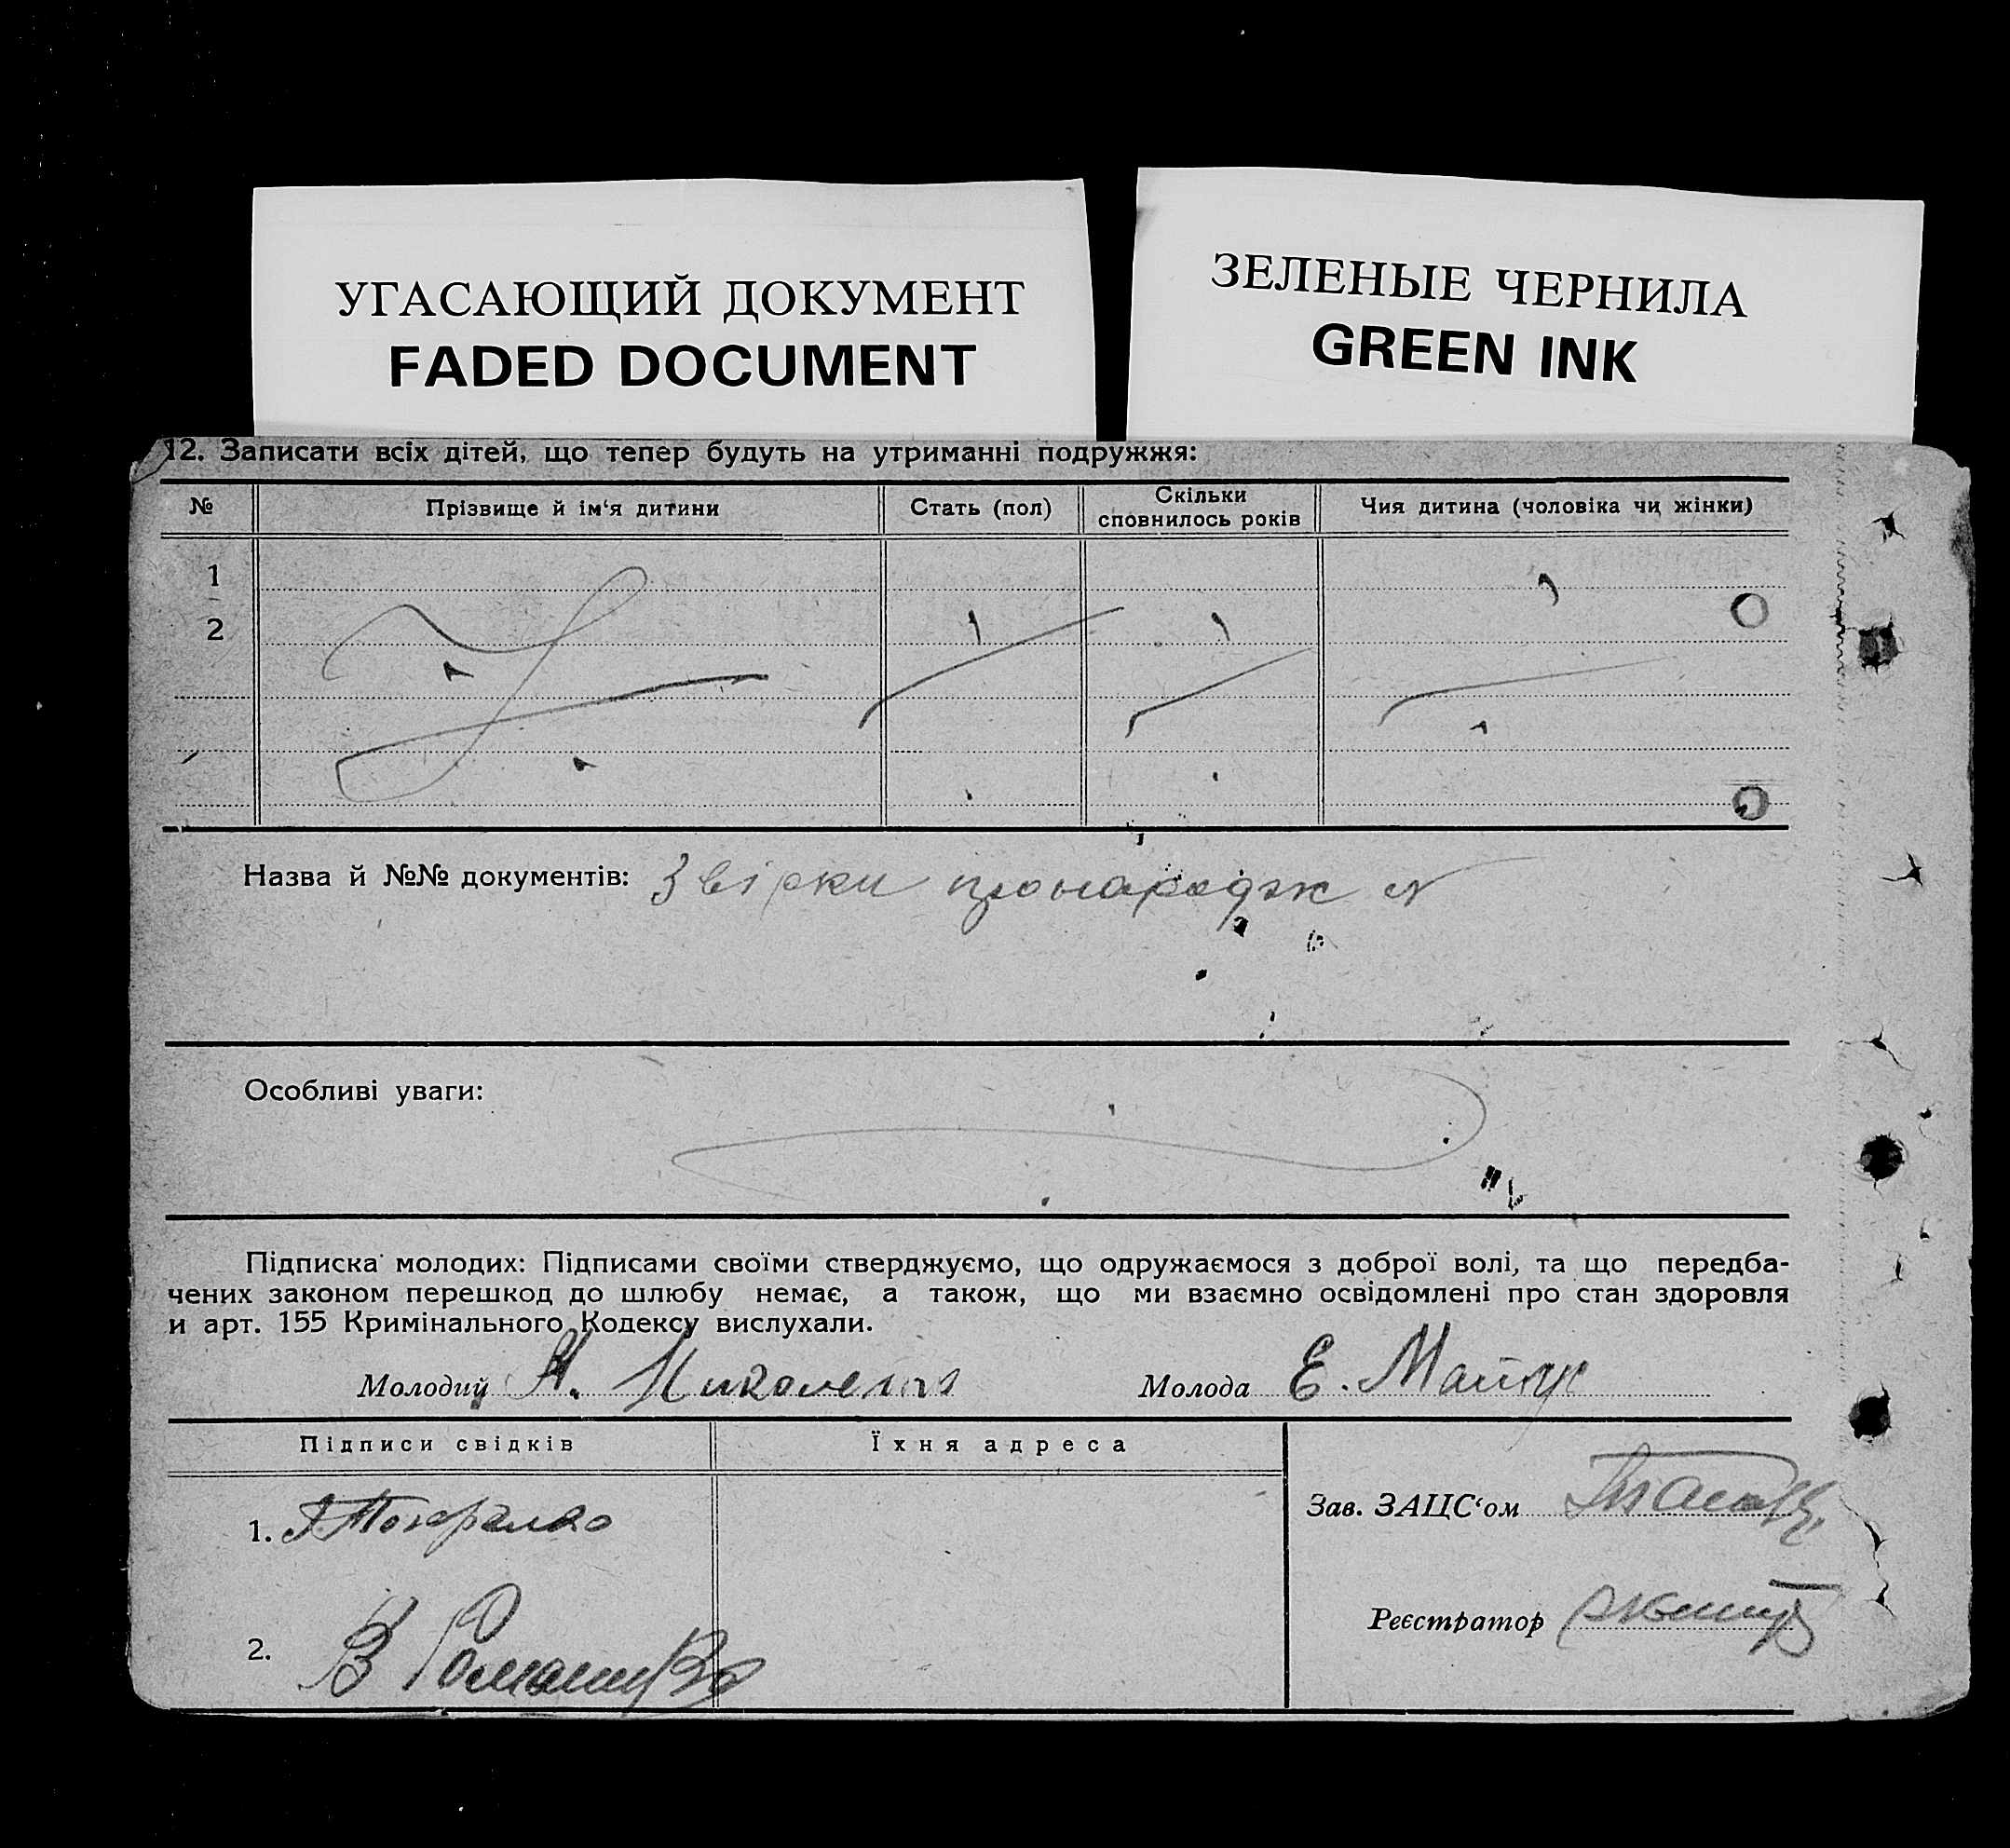 УГАСАЮЩИЙ ДОКУМЕНТ
FADED DOCUMENT
ЗЕЛЕНЫЕ ЧЕРНИЛА
GREEN INK
12. Записати всіх дітей, що тепер будуть на утриманні подружжя:
№ Прізвище й ім'я дитини Стать (пол) Скільки сповнилось років Чия дитина (чоловіка чи жінки)
1
2
Назва й №№ документів:
Особливі уваги:
Підписка молодих: Підписами своїми стверджуємо, що одружаємося з доброї волі, та що передба-
чених законом перешкод до шлюбу немає, а також, що ми взаємно освідомлені про стан здоровля
и арт. 155 Кримінального Кодексу вислухали.
Молодий Молода Е.
Підписи свідків Їхня адреса
Зав. ЗАЦС'ом
1.
Реєстратор
2. В